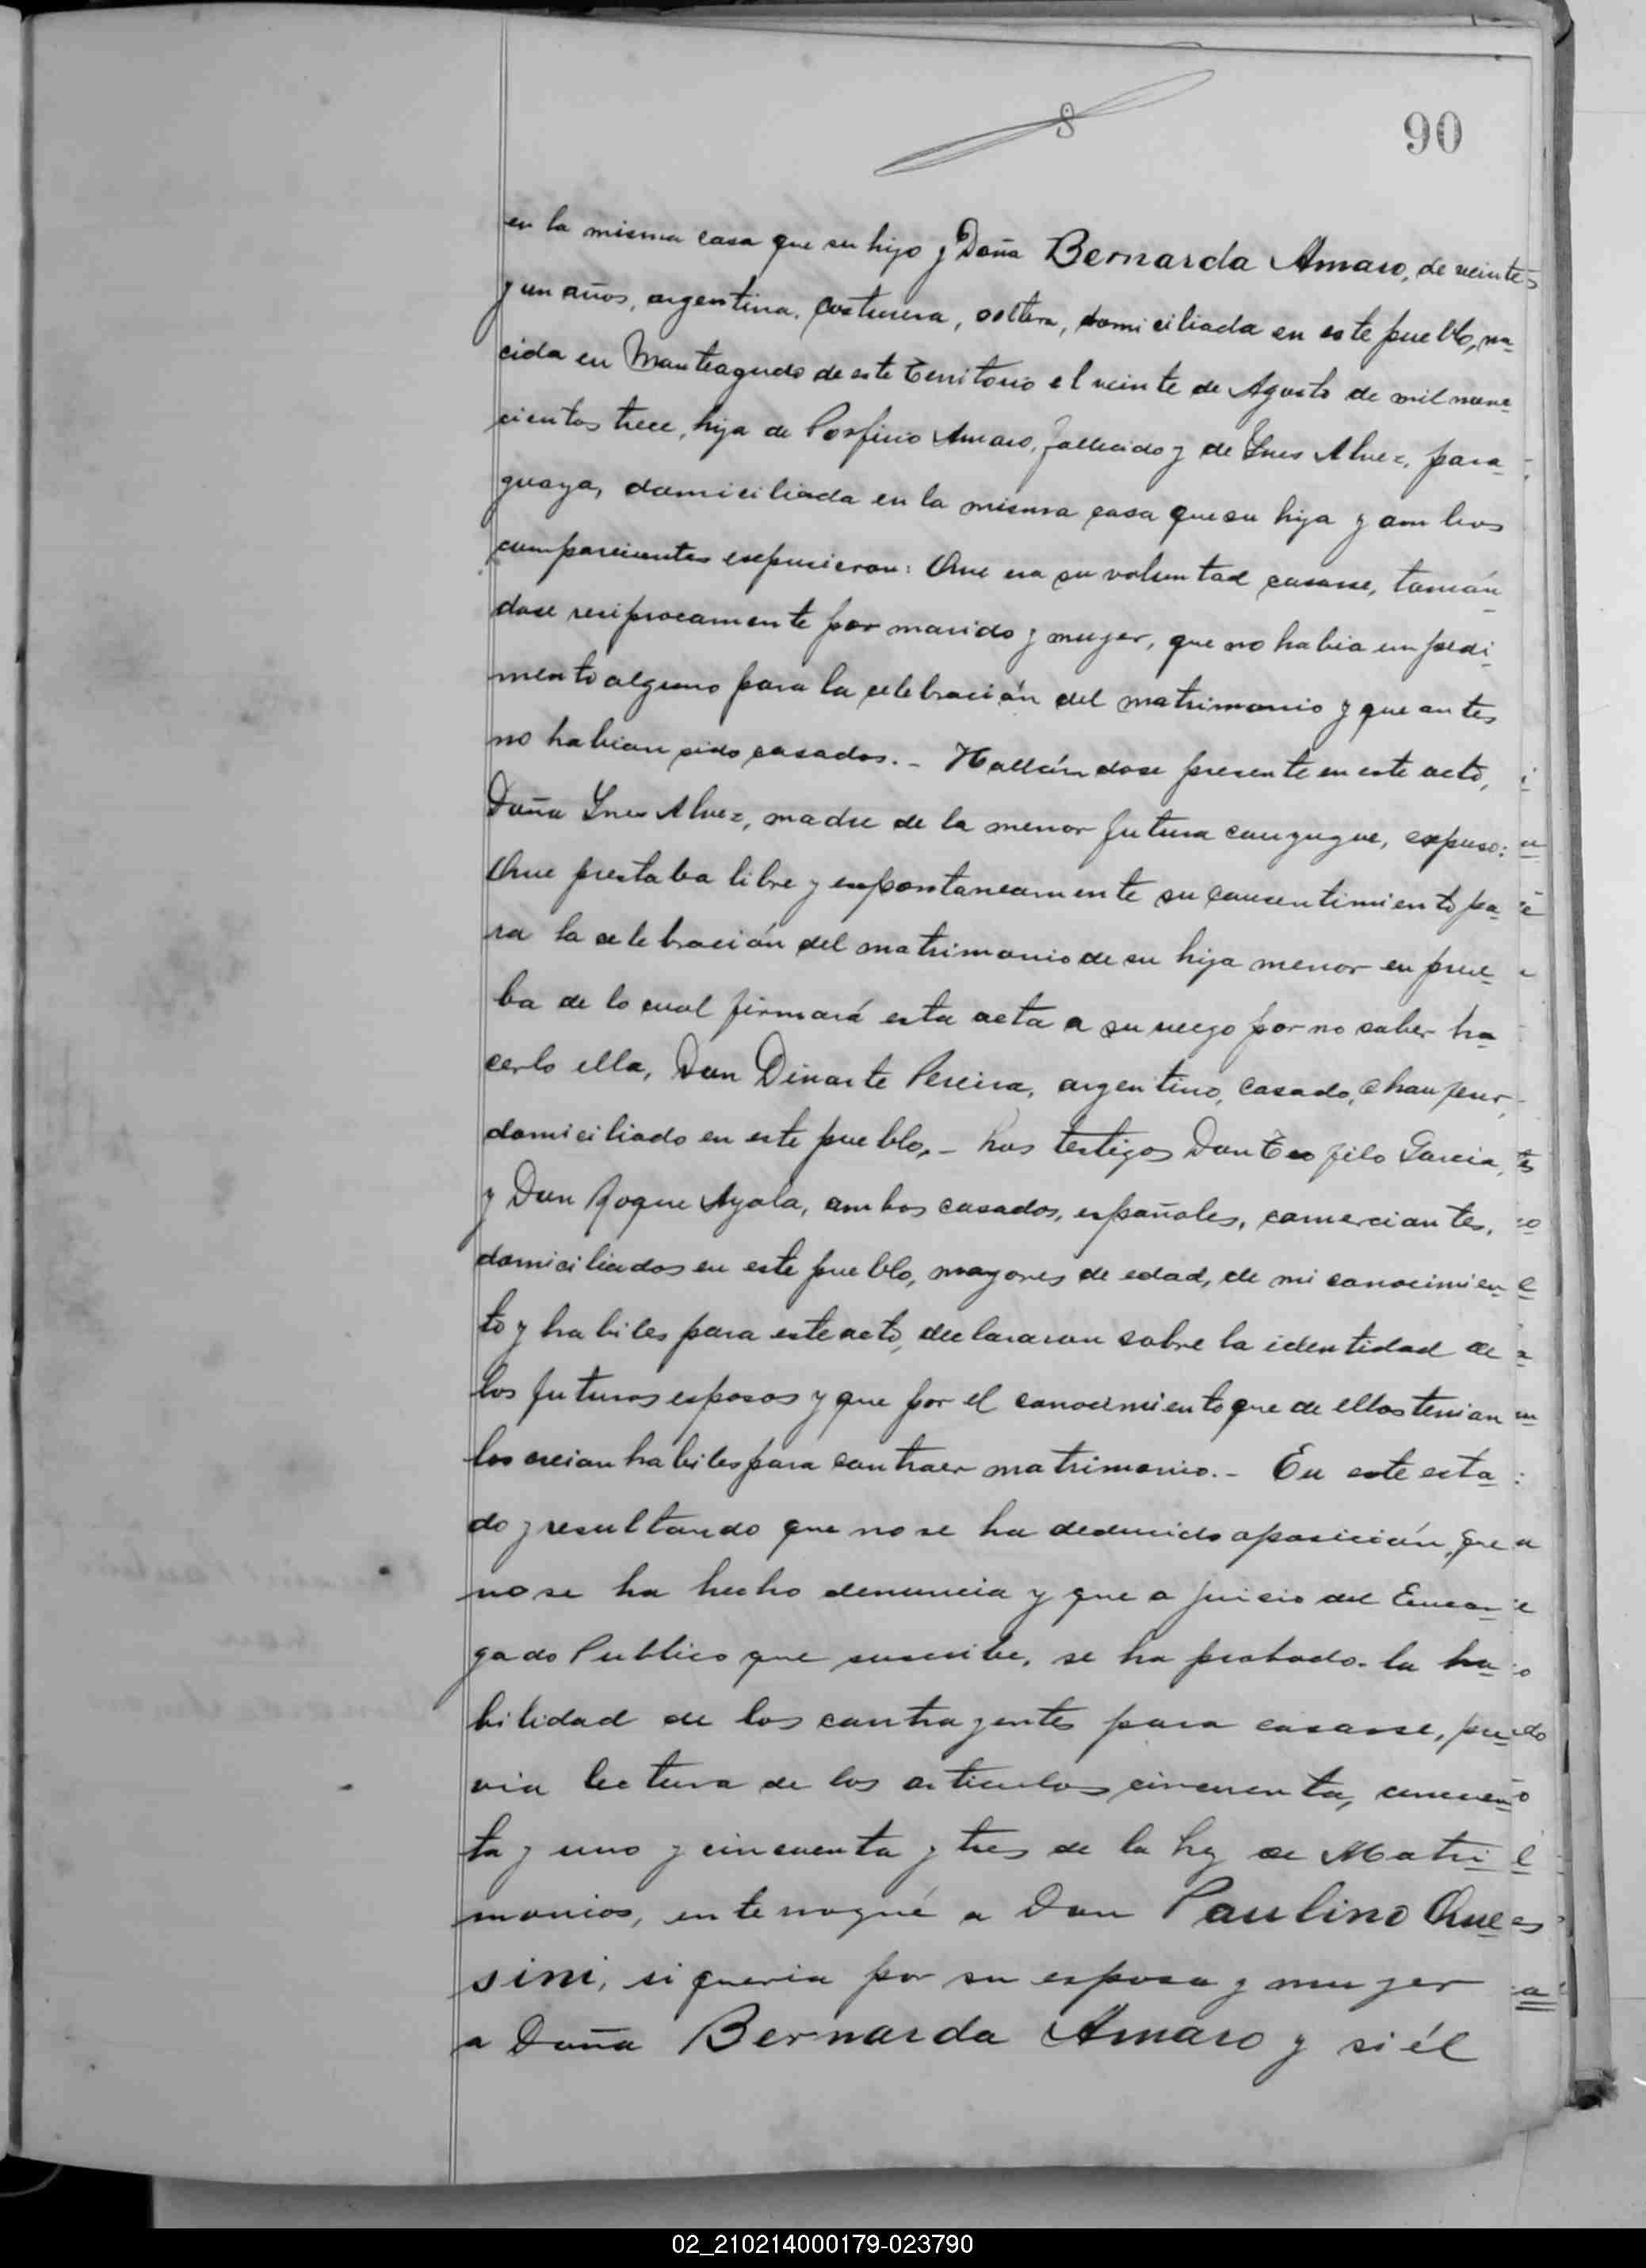 8
90
en la misma casa que su hijo y Doña Bernarda Amaro, de veinte
y un años, argentina, costurera, soltera, domiciliada en este pueblo, na-
cida en Monteagudo de este Territorio el veinte de Agosto de mil nove-
cientos trece, hija de Porfirio Amaro, fallecido y de Ynes Alvez, para-
guaya, domiciliada en la misma casa que su hija y ambos
comparecientes expusieron: Que era su voluntad casarse, toman-
dose reciprocamente por marido y mujer, que no habia impedi-
mento alguno para la celebración del matrimonio y que antes
no habian sido casados. - Hallándose presente en este acto,
Doña Ynes Alvez, madre de la menor futura conyugue, expuso:
Que prestaba libre y espontaneamente su consentimiento pa-
ra la celebración del matrimonio de su hija menor en prue-
ba de lo cual firmará esta acta a su ruego por no saber ha-
cerlo ella, Don Dinarte Pereira, argentino, casado, chaufeur,
domiciliado en este pueblo. - Los testigos Don Teofilo Garcia,
y Don Roque Ayala, ambos casados, españoles, comerciantes,
domiciliados en este pueblo, mayores de edad, de mi conocimien-
to y habiles para este acto, declararon sobre la identidad de
los futuros esposos y que por el conocimiento que de ellos tenian
los creian habiles para contraer matrimonio. - En este esta-
do y resultando que no se ha deducido oposición, que
no se ha hecho denuncia y que a juicio del Encar-
gado Publico que suscribe, se ha probado la ha-
bilidad de los contrayentes para casarse, pre-
via lectura de los articulos cincuenta, cincuen-
ta y uno y cincuenta y tres de la ley de Matri-
monios, interrogué a Don Paulino Que-
sini, si queria por su esposa y mujer
a Doña Bernarda Amaro y si él
02_210214000179-023790